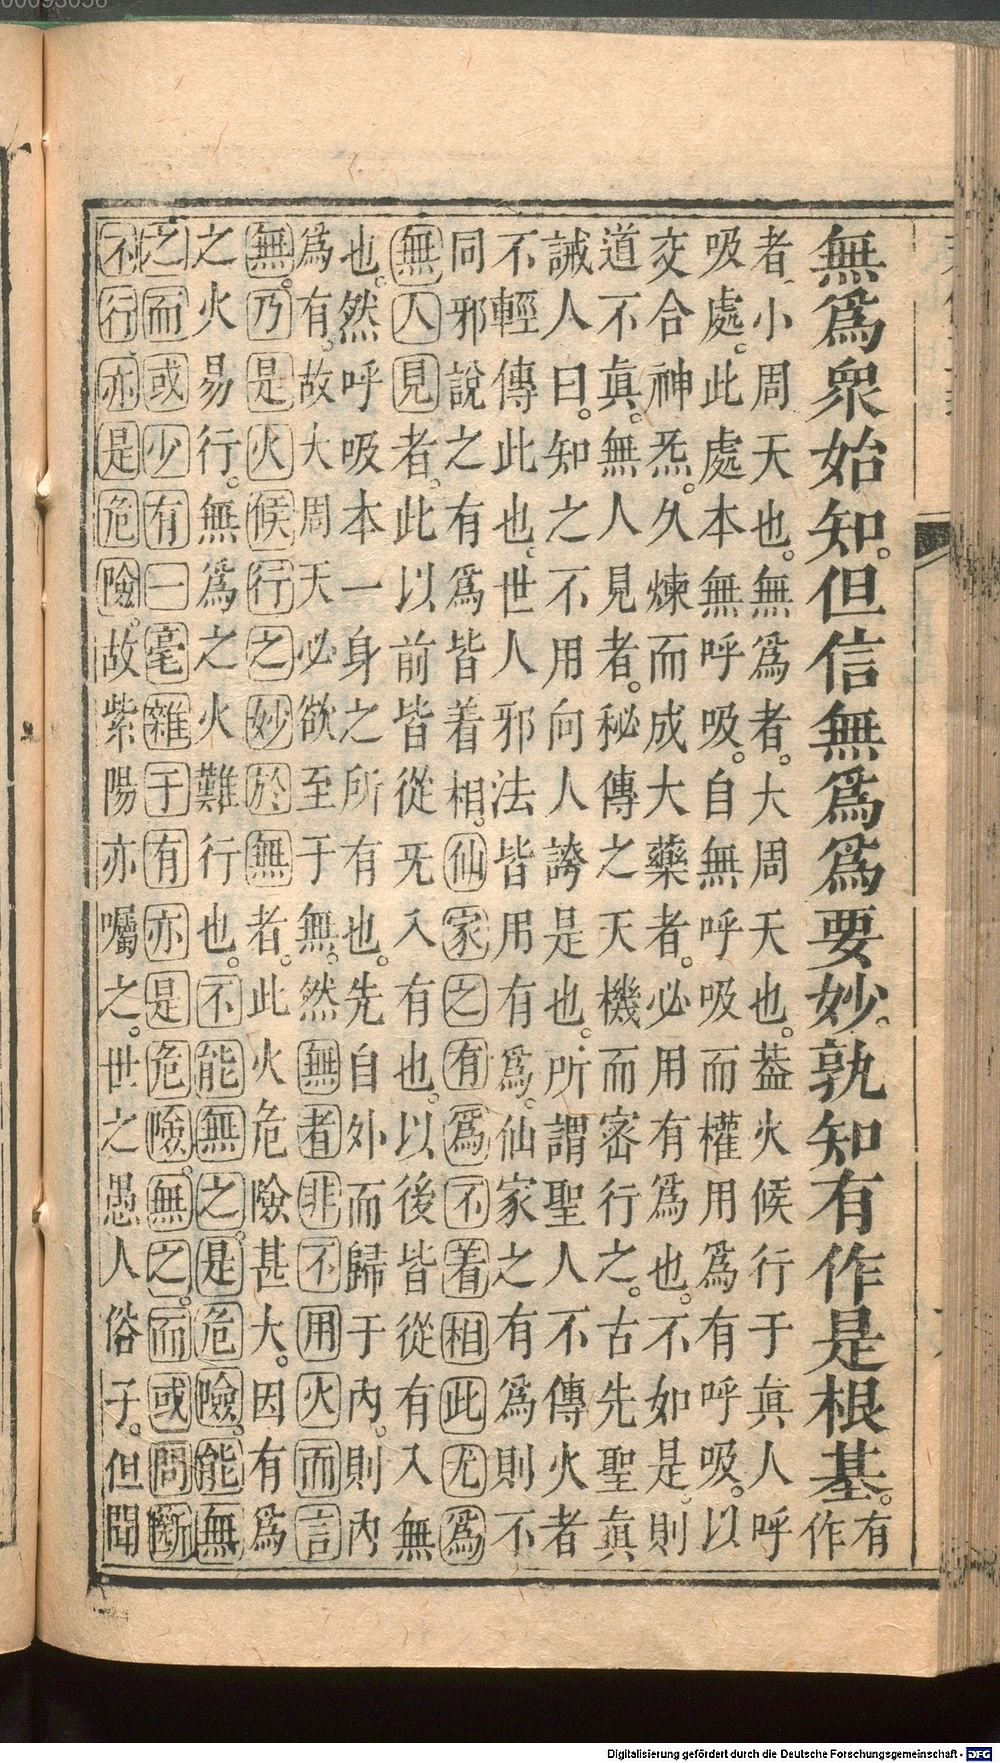 無爲衆始知。但信無爲爲要妙。孰知有作是根基。有作
者小周天也。無爲者。大周天也。葢火候行于眞人呼
吸處。此處本無呼吸。自無呼吸而權用爲有呼吸。以
交合神炁。久煉而成大藥者。必用有爲也。不如是。則
道不眞。無人見者。秘傳之天機而密行之。古先聖眞
誡人曰。知之不用向人誇是也。所謂聖人不傳火者
不輕傳此也。世人邪法皆用有爲。仙家之有爲則不
同邪說之有爲皆着相。仙家之有爲不着相此尤爲
無人見者。此以前皆從旡入有也。以後皆從有入無
也。然呼吸本一身之所有也。先自外而歸于內。則內
爲有。故大周天必欲至于無。然無者非不用火而言
無。乃是火候行之妙於無者。此火危險甚大。因有爲
之火易行。無爲之火難行也。不能無之。是危險。能無
之而或少有一毫雜于有亦是危險。無之。而或間斷
不行亦是危險。故紫陽亦囑之。世之愚人俗子。但聞
Digitalisierung gefördert durch die Deutsche Forschungsgemeinschaft - DFG